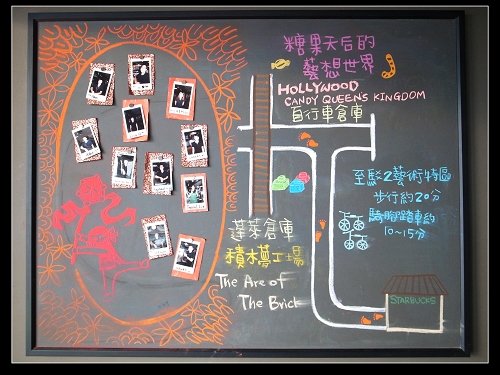 糖果天后的
藝想世界
HOLLYWOOD
CANDY QUEENS KINGDOM
自行車倉庫
至駁2藝術特區
步行約20分
騎腳踏車約
10~15分
蓬萊倉庫
積木夢工場
The Are of
The Brick
STARBUCKS